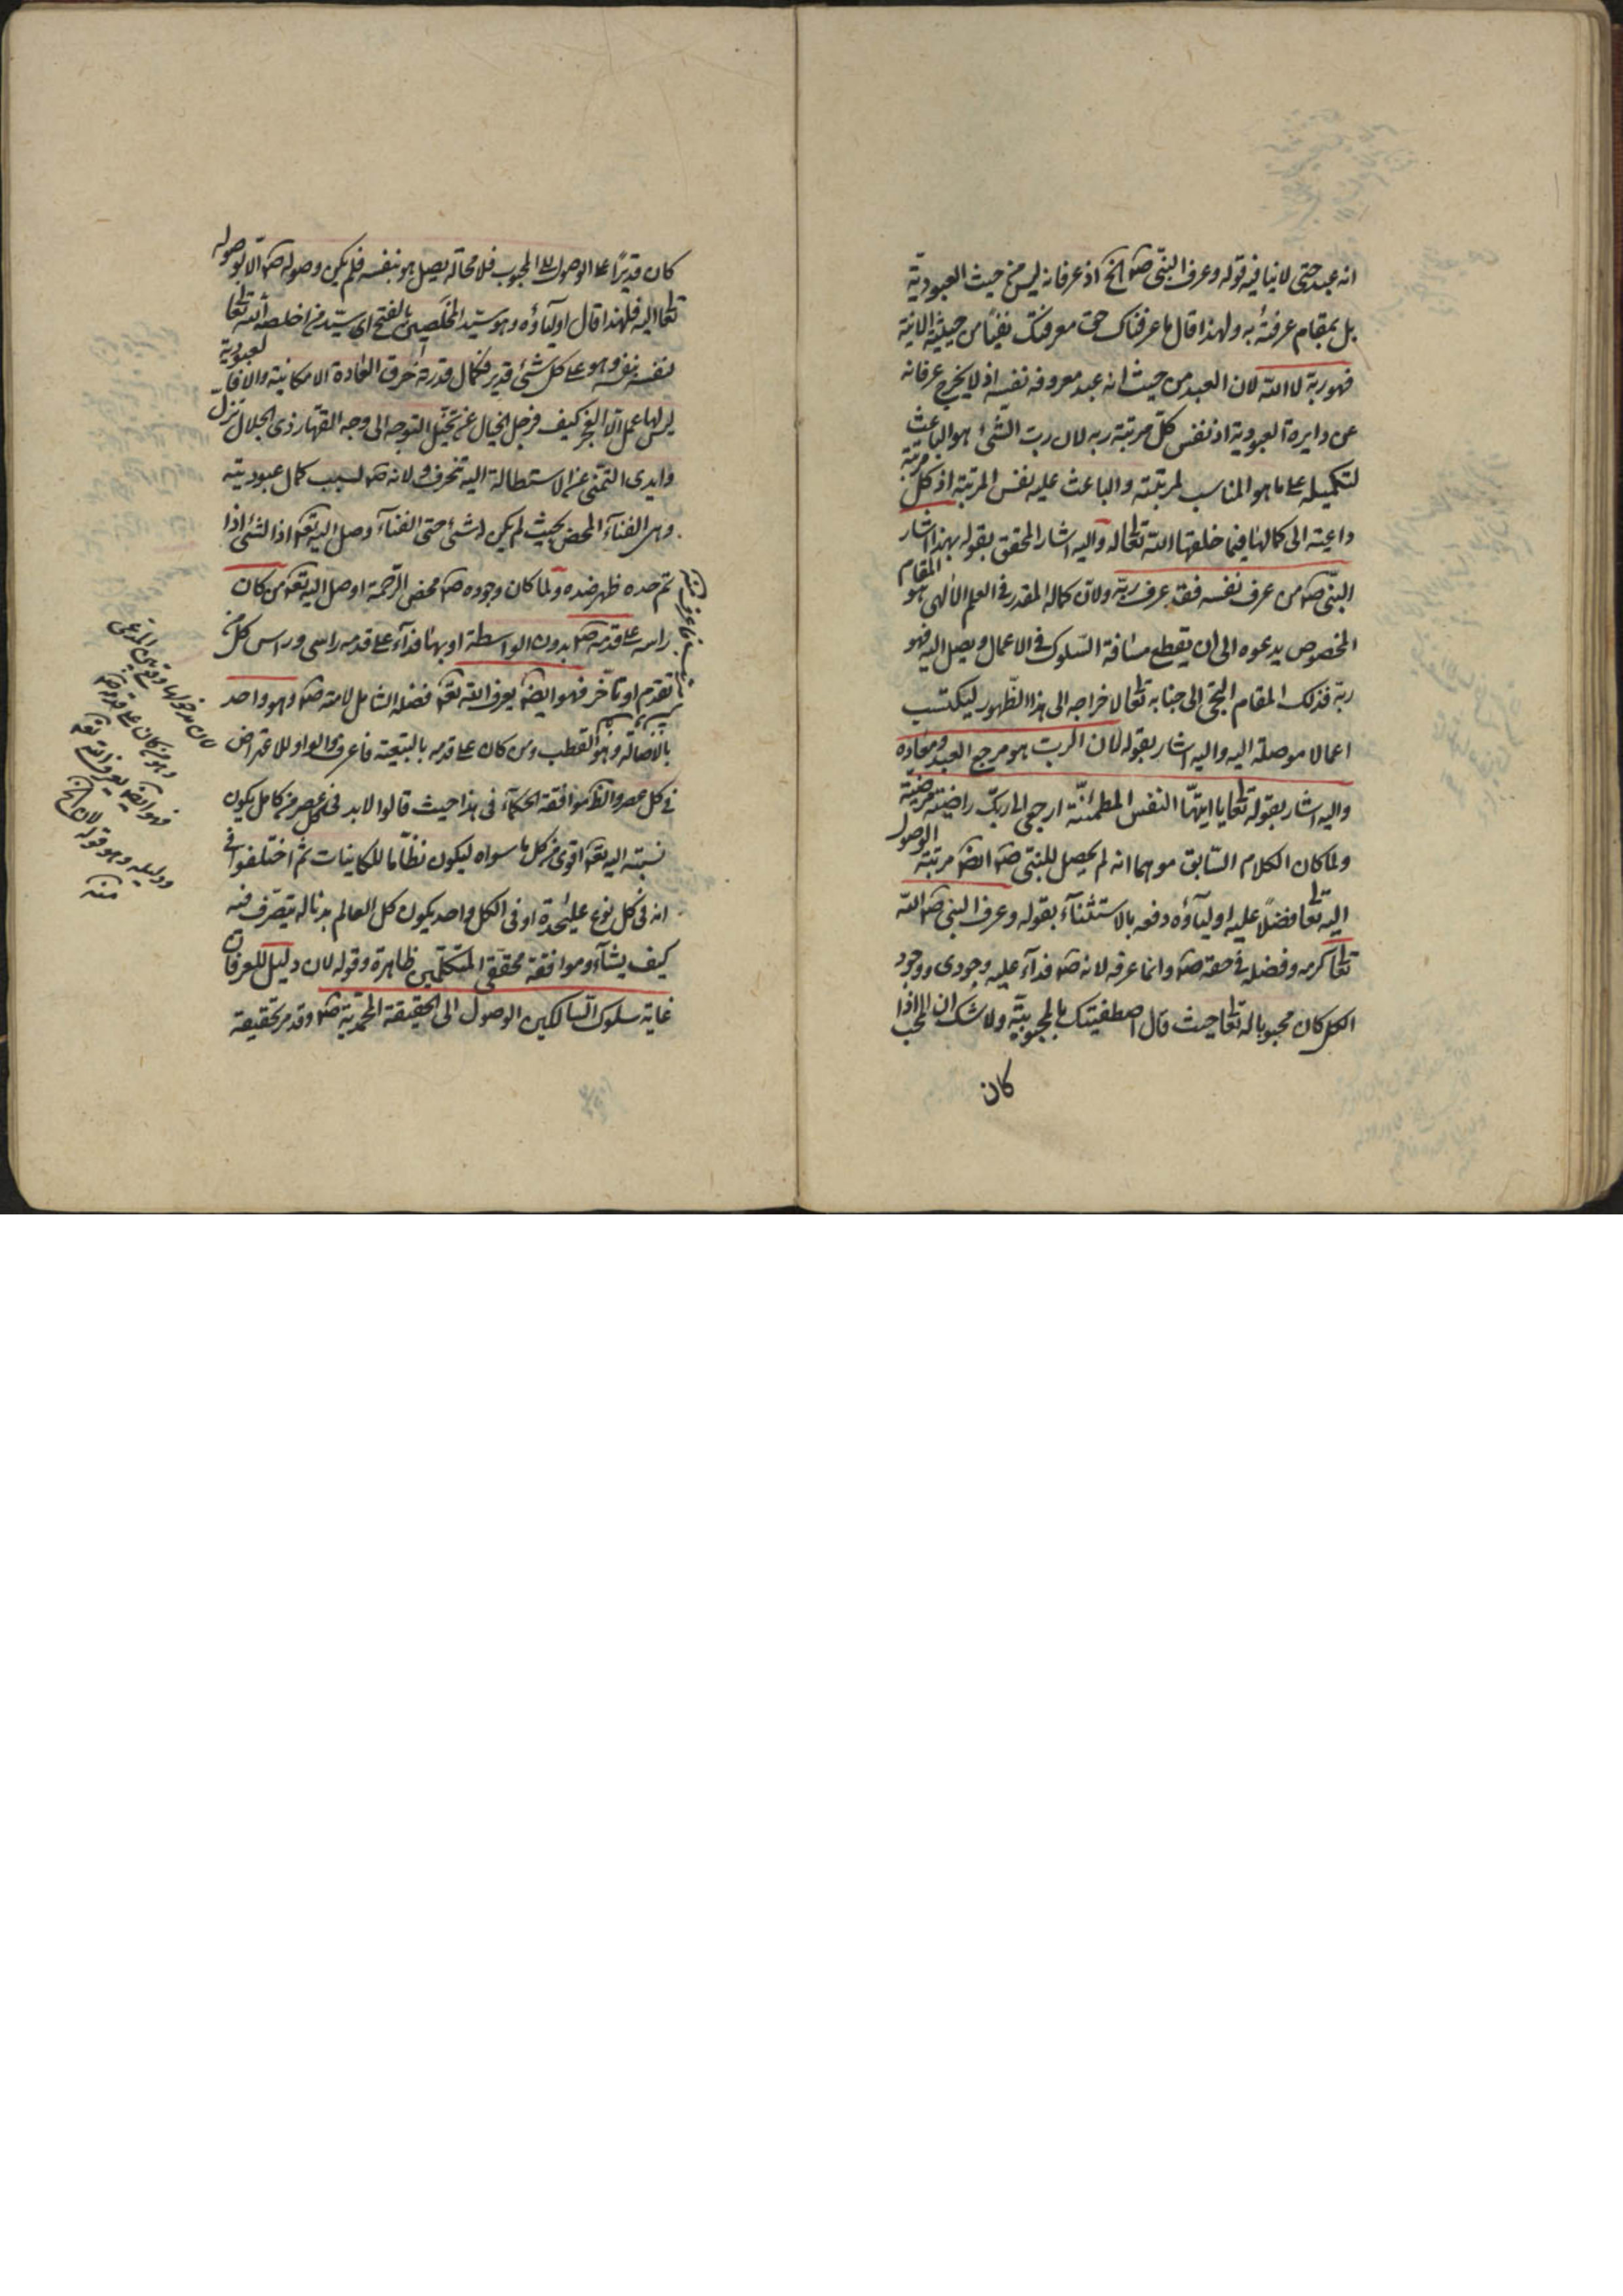 انه عبد حتى لا ينافيه قوله وعرف النبى صم الخ اذ عرفانه ليس من حيث العبودية
بل بمقام عرفته به ولهذا قال ما عرفناك حق معرفتك نفيًا من حيثية الانية
فهو ربه لا الله لان العبد من حيث انه عبد معروفه نفسه اذ لا يخرج عرفانه
عن دايرة العبودية اذ نفس كل مرتبة ربه لان رب الشئ هو الباعث
لتكميله على ما هو المناسب لمرتبته والباعث عليه نفس المرتبة اذ كل مرتبة
داعية الى كمالها فيما خلقها الله تعالى له واليه اشار المحقق بقوله بهذا اشار
النبى صم من عرف نفسه فقد عرف ربه ولان كماله المقدر فى العلم الالهى هو المقام
المخصوص يدعوه الى ان يقطع مسافة السلوك فى الاعمال ويصل اليه فهو
ربه فذلك المقام التجى الى جنابه تعالى لاخراجه الى هذا الظهور ليكتسب
اعمالا موصلة اليه واليه اشار بقوله لان الرب هو مرجع العبد ومعاده
واليه اشار بقوله تعالى يا ايتها النفس المطمئنة ارجعى الى ربك راضية مرضية
ولما كان الكلام السابق موهما انه لم يحصل للنبى صم ايضا مرتبة الوصول
اليه تعالى فضلًا عليه اوليآؤه دفعه بالاستثنآء بقوله وعرف النبى صم الله
تعالى كرمه وفضله فى حقه صم وانما عرفه لانه صم فدآء عليه وجودى ووجود
الكل كان محبوبا له تعالى حيث قال اصطفيتك بالمحبوبية ولا شك ان المحب اذا
كان
كان قديرًا على الوصول الى المحبوب فلا محالة يصل هو بنفسه فلم يكن وصوله صم الا بوصوله
تعالى اليه فلهذا قال اوليآؤه وهو سيد المخلصين بالفتح اى سيد من اخلصه الله تعالى
لنفسه بنفسه وهو على كل شئ قدير فكمال قدرته خرق العادة الامكانية والا فالعبودية
ليس لها عمل الا العجز كيف فرجل الخيال عن تخيل التوجه الى وجه القهار ذى الجلال تنزل
وايدى التمنى عن الاستطالة اليه تنحرف ولانه صم لسبب كمال عبوديته
وهى الفنآء المحض بحيث لم يكن له شئ حتى الفنآء وصل اليه تعه اذ الشئ اذا
تم حده ظهر ضده ولما كان وجوده صم محض الرحمة اوصل اليه تعه من كان
راسه على قدمه صم بدون الواسطة او بها فدآء على قدمه راسى وراس كل من
تقدم او تأخر فهو ايضا يعرف الله تعه فضله الشامل لامته صم وهو واحد
بالاصالة وهو القطب ومن كان على قدمه بالتبعية فاعرف والواو للاعتراض
فى كل عصر والظ موافقة الحكمآء فى هذا حيث قالوا لا بد فى كل عصر من كامل يكون
نسبته اليه تعه اقوى من كل ما سواه ليكون نظاما للكاينات ثم اختلفوا فى
انه فى كل نوع عليحدة او فى الكل واحد يكون كل العالم بدنا له يتصرف فيه
كيف يشآء وموافقة محققى المتكلمين ظاهرة وقوله لان دليل للعرفان
غاية سلوك السالكين الوصول الى الحقيقة المحمدية صم وقد مر تحقيقه
لان مدخولها وقع بين المدعى
وهو من كان على قدمه صم
فهو ايضا يعرف الله تعه
ودليله وهو قوله لان الخ
منه